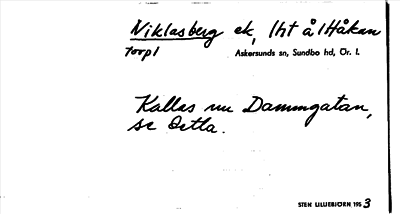 Niklasberg ek, 1ht å 1 Håkan
torp 1 Askersunds sn, Sundbo hd, Ör. l.
Kallas nu Dammgatan,
se Östla.
STEN LILLIEBJÖRN 1953